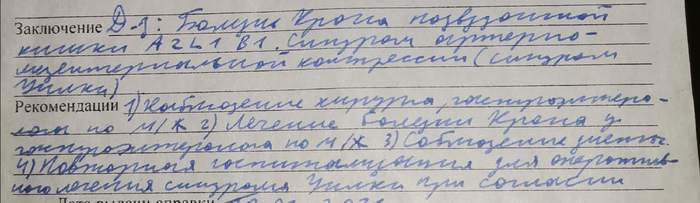 Заключение Д-з: Болезнь Крона подвздошной
кишки A2L1 B1. Синдром артерио-
мезентериальной компрессии (синдром
Уилки)
Рекомендации 1) Наблюдение хирурга, гастроэнтеро-
лога по м/ж 2) Лечение болезни Крона у
гастроэнтеролога по м/ж 3) Соблюдение диеты.
4) Повторная госпитализация для оператив-
ного лечения синдрома Уилки при согласии
Дата выдачи справки